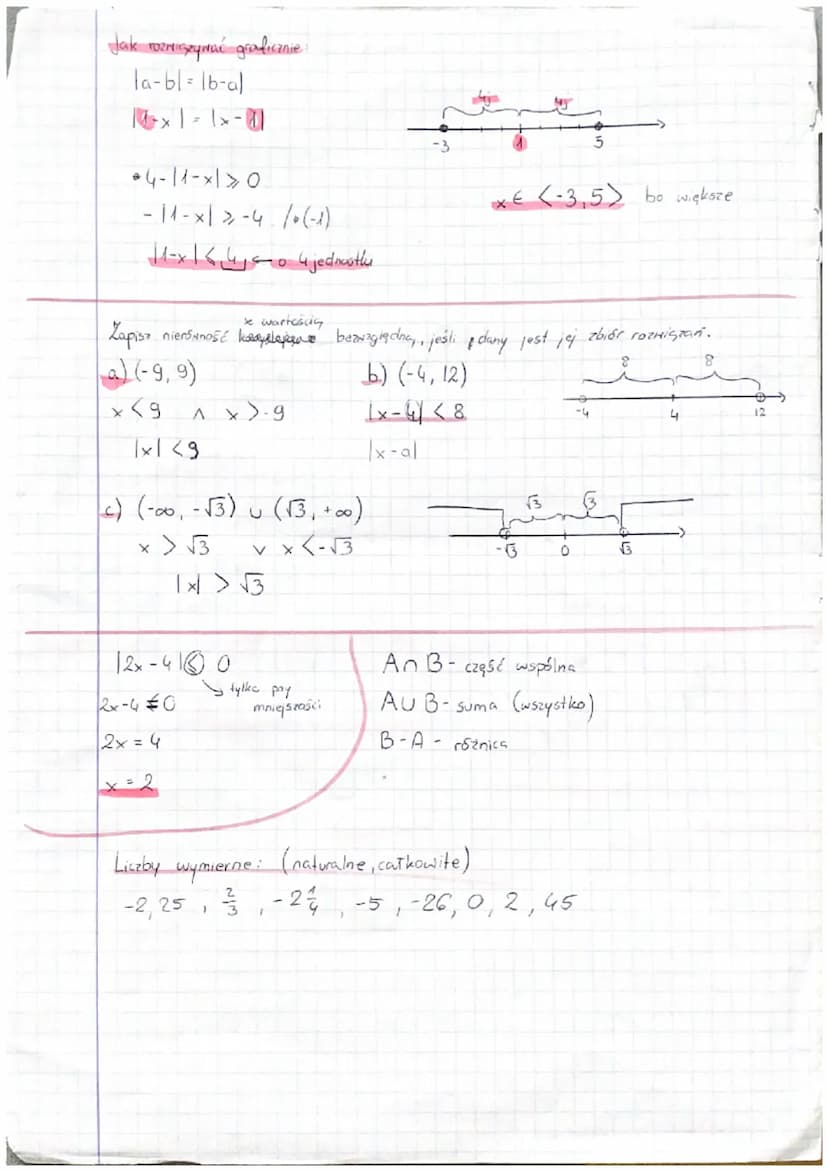 Jak rozwiązywać graficznie:
|a-b| = |b-a|
|1-x| = |x-1|
4j 4j
-3 1 5
• 4-|1-x| ⩾ 0
- |1-x| ⩾ -4 /•(-1)
|1-x| ⩽ 4 ← o 4 jednostki
x ∈ <-3,5> bo większe
z wartością
Zapisz nierówność bezwzględną, jeśli dany jest jej zbiór rozwiązań.
a) (-9, 9)
x < 9 ∧ x > -9
|x| < 9
b) (-4, 12)
|x-4| < 8
|x-a|
8 8
-4 4 12
c) (-∞, -√3) ∪ (√3, +∞)
x > √3 ∨ x < -√3
|x| > √3
√3 √3
-√3 0 √3
|2x-4| ⩽ 0
↘ tylko przy mniejszości
2x-4 = 0
2x = 4
x = 2
A ∩ B - część wspólna
A ∪ B - suma (wszystko)
B - A - różnica
Liczby wymierne: (naturalne, całkowite)
-2,25 , 2/3 , -2 1/4 , -5 , -26, 0, 2, 45